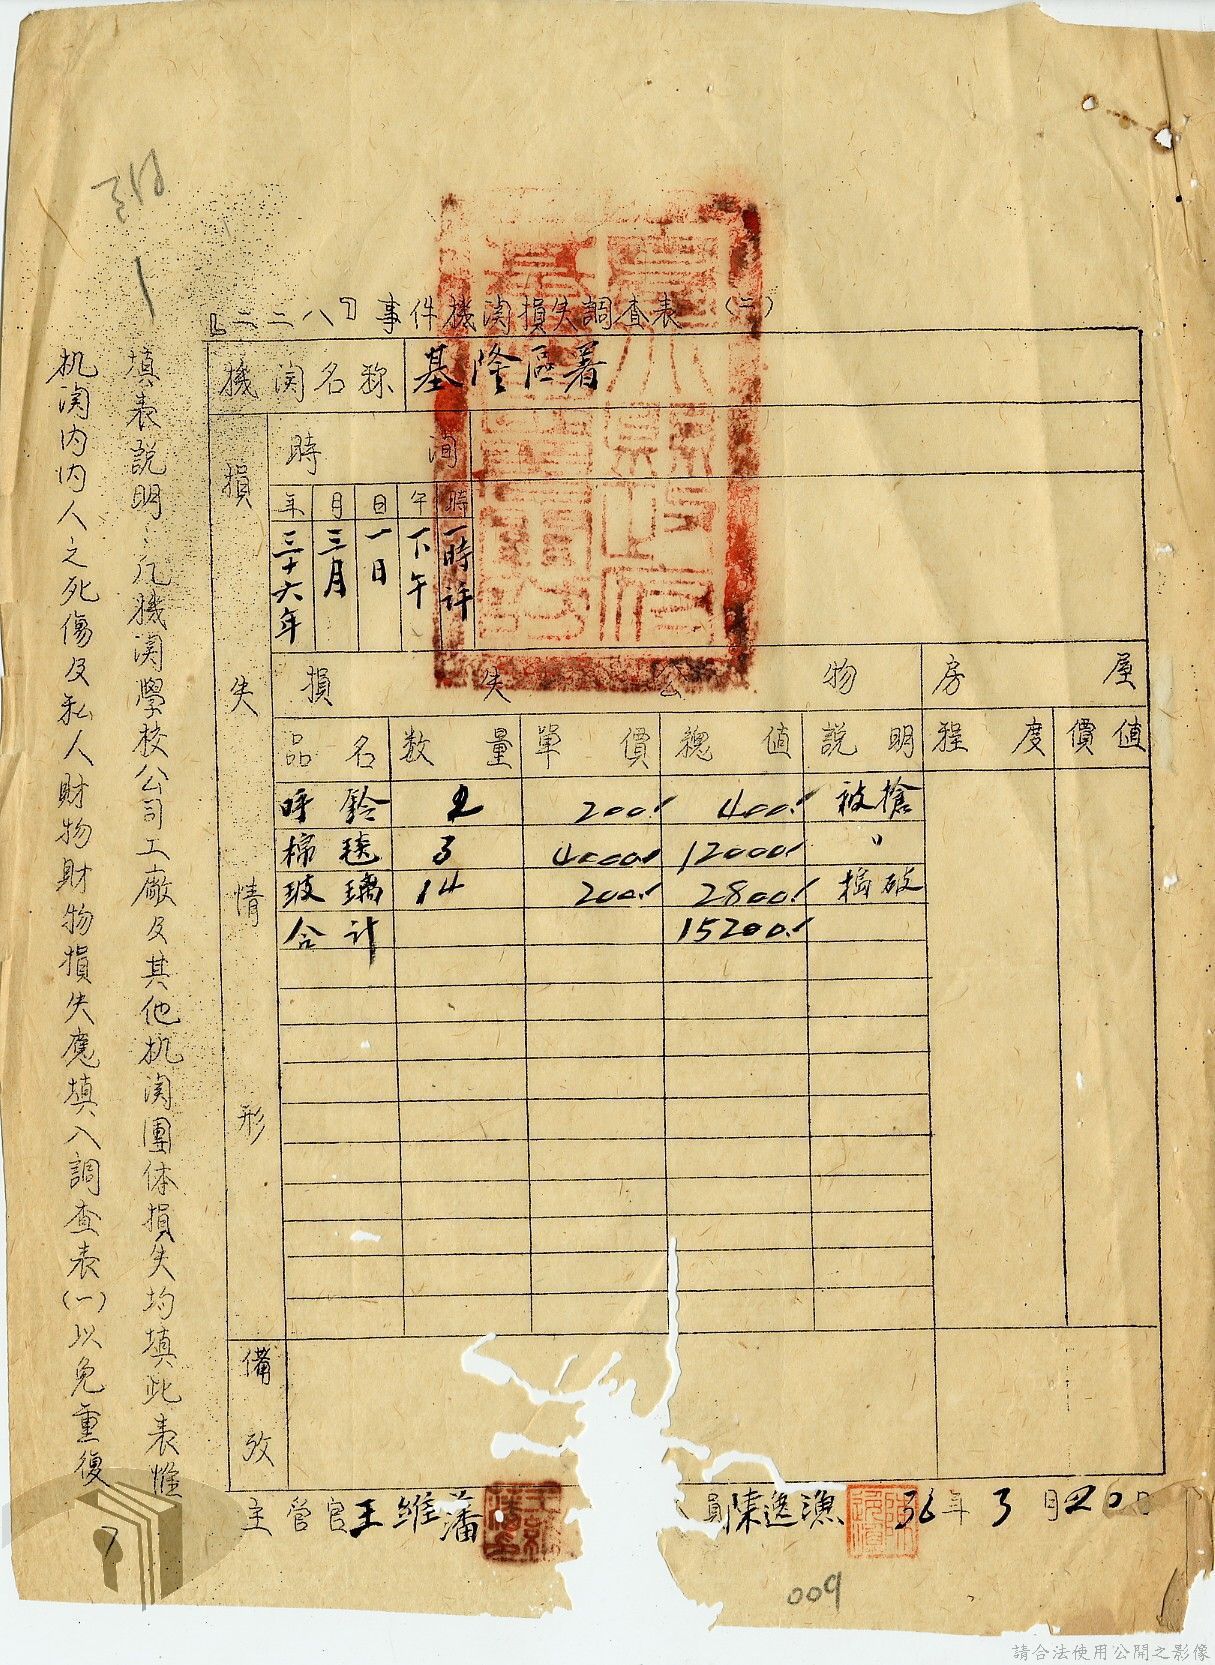 「二二八」事件機関損失調查表(二)
機関名称 基隆區署
損失情形
時間
年 月 日 午 時
三十六年 三月 一日 下午 一時許
損失公物 房屋
品名 数量 單價 總値 説明 程度 價値
呼鈴 2 200. 400. 被搶
棉毯 3 4000. 12000. 〃
玻璃 14 200. 2800. 搗破
合計 15200.
備攷
主管官 王維藩 員 陳逸漁 36年3月20日
填表説明:凡機関學校公司工廠及其他机関團体損失均填此表惟
机関内内人之死傷及私人財物財物損失應填入調查表(一)以免重復
009
請合法使用公開之影像